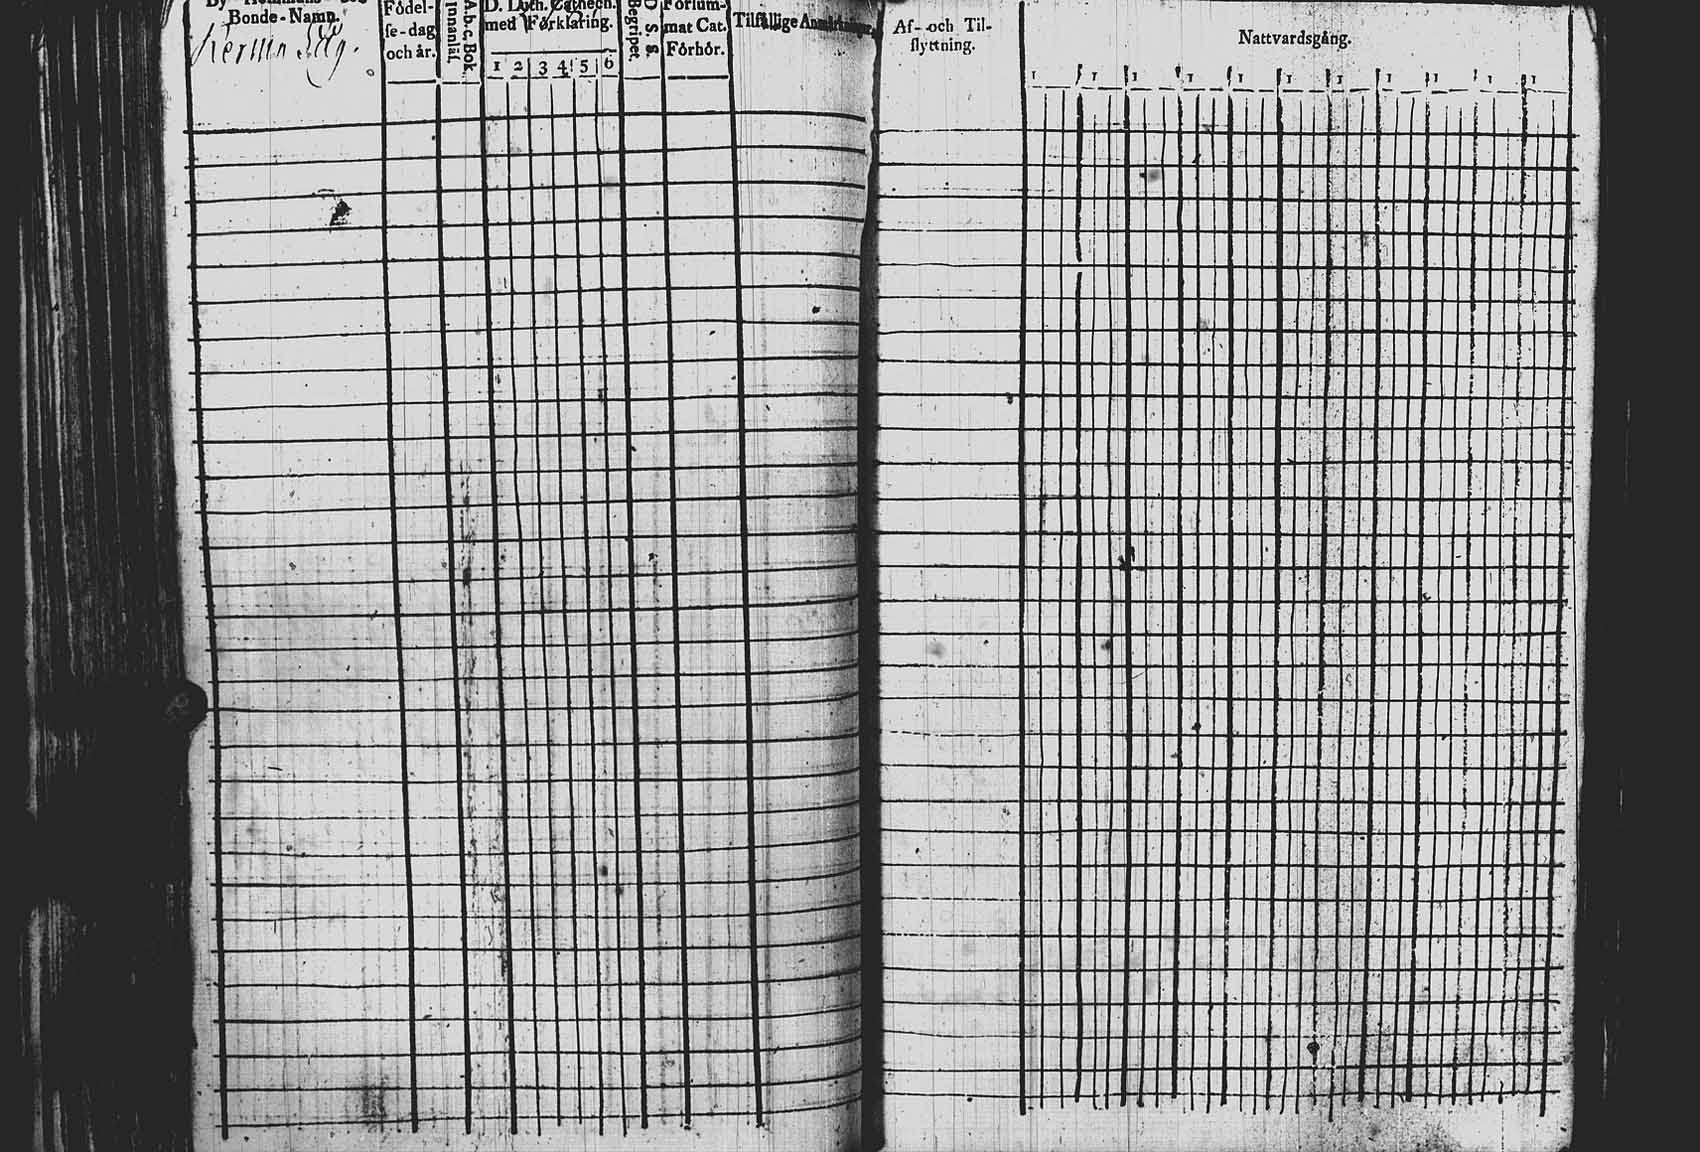 Bonde-Namn.
Födel-
se-dag
och år.
Innanläs.
A.b.c. Bok
D. Luth. Cathech.
med Förklaring.
1 2 3 4 5 6
Begripet.
D. S. S.
Försum-
mat Cat.
Förhör.
Tilfällige Anmärkningar.
Af- och Til-
flyttning.
Nattvardsgång.
1 1 1 1 1 1 1 1 1 1 1